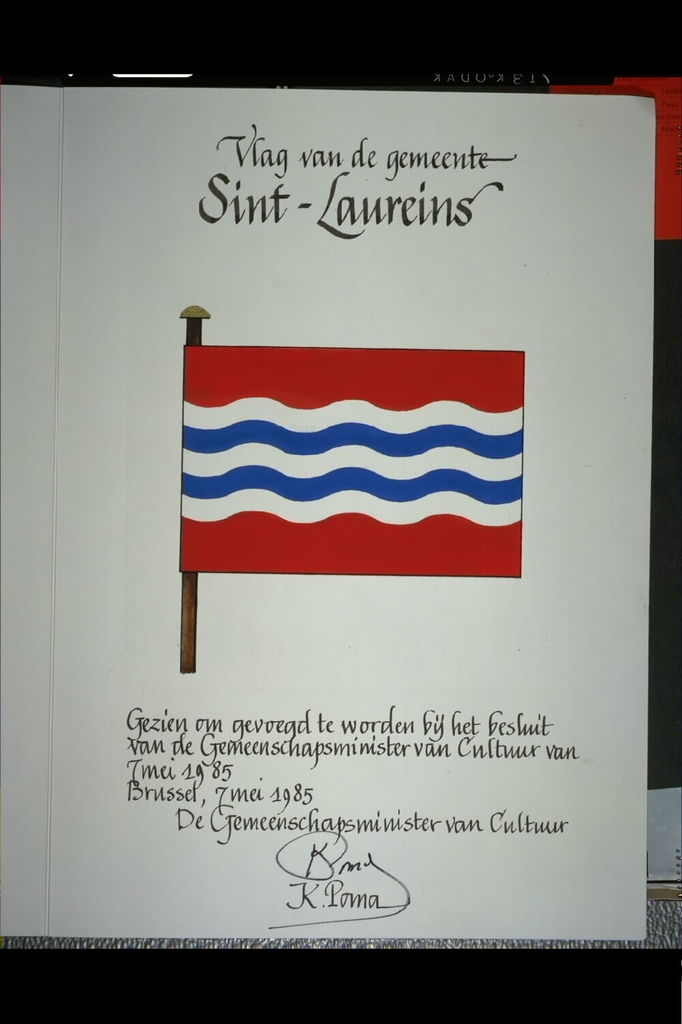 13 KODAK
Vlag van de gemeente
Sint-Laureins
Gezien om gevoegd te worden bij het besluit
van de Gemeenschapsminister van Cultuur van
7 mei 1985
Brussel, 7 mei 1985
De Gemeenschapsminister van Cultuur
K. Poma